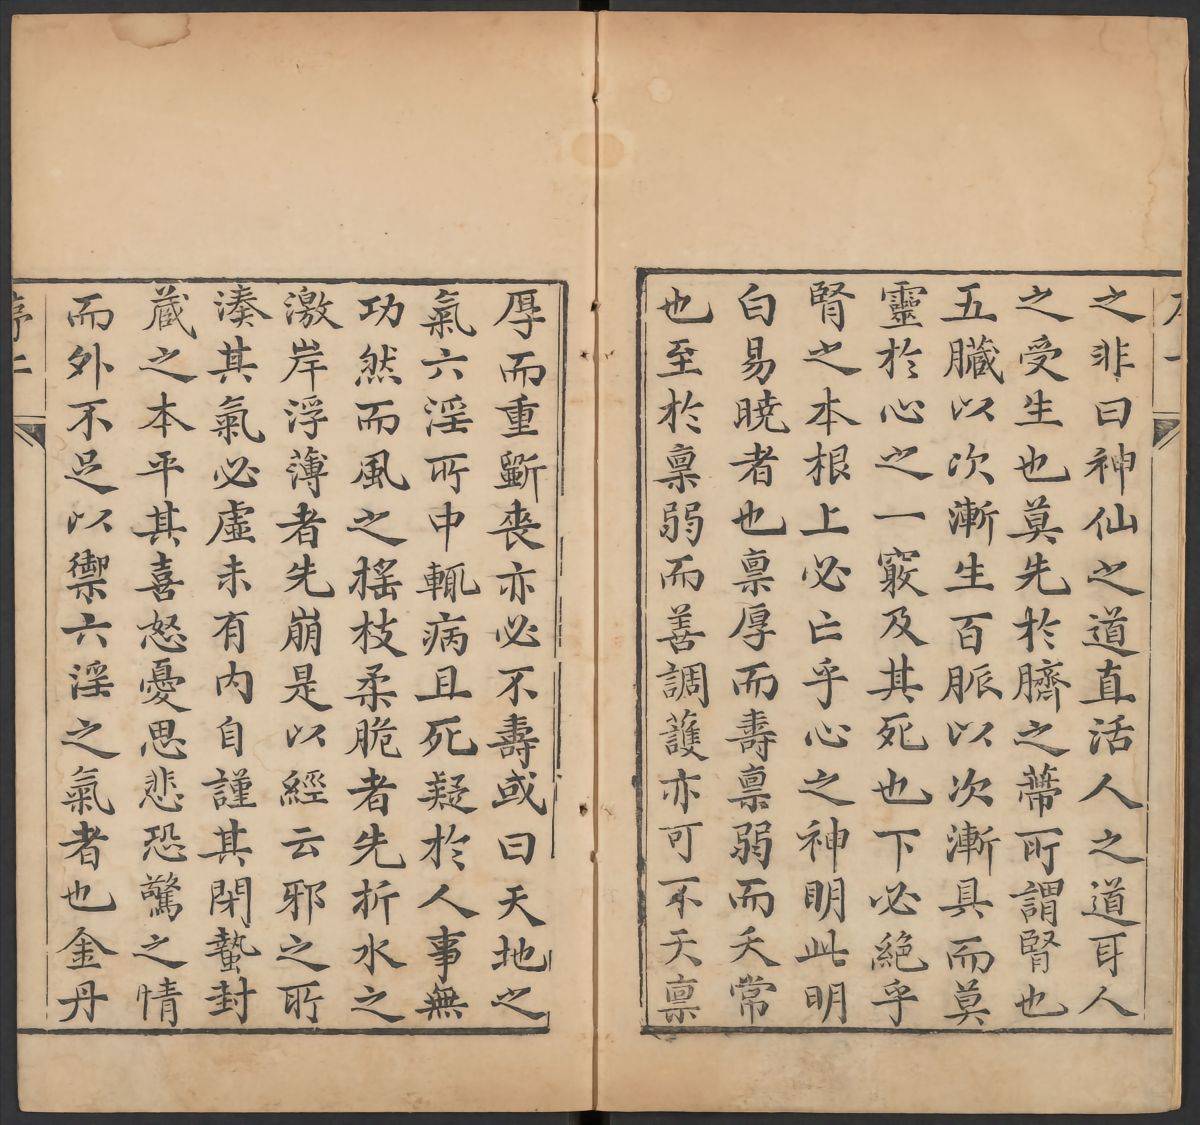 之非曰神仙之道直活人之道耳人
之受生也莫先於臍之蔕所謂腎也
五臟以次漸生百脈以次漸具而莫
靈於心之一竅及其死也下必絕乎
腎之本根上必亡乎心之神明此明
白易曉者也稟厚而壽稟弱而夭常
也至於稟弱而善調護亦可不夭稟
厚而重斵喪亦必不壽或曰天地之
氣六淫所中輒病且死疑於人事無
功然而風之搖枝柔脆者先折水之
激岸浮薄者先崩是以經云邪之所
湊其氣必虛未有內自謹其閉蟄封
蔵之本平其喜怒憂思悲恐驚之情
而外不足以禦六淫之氣者也金丹